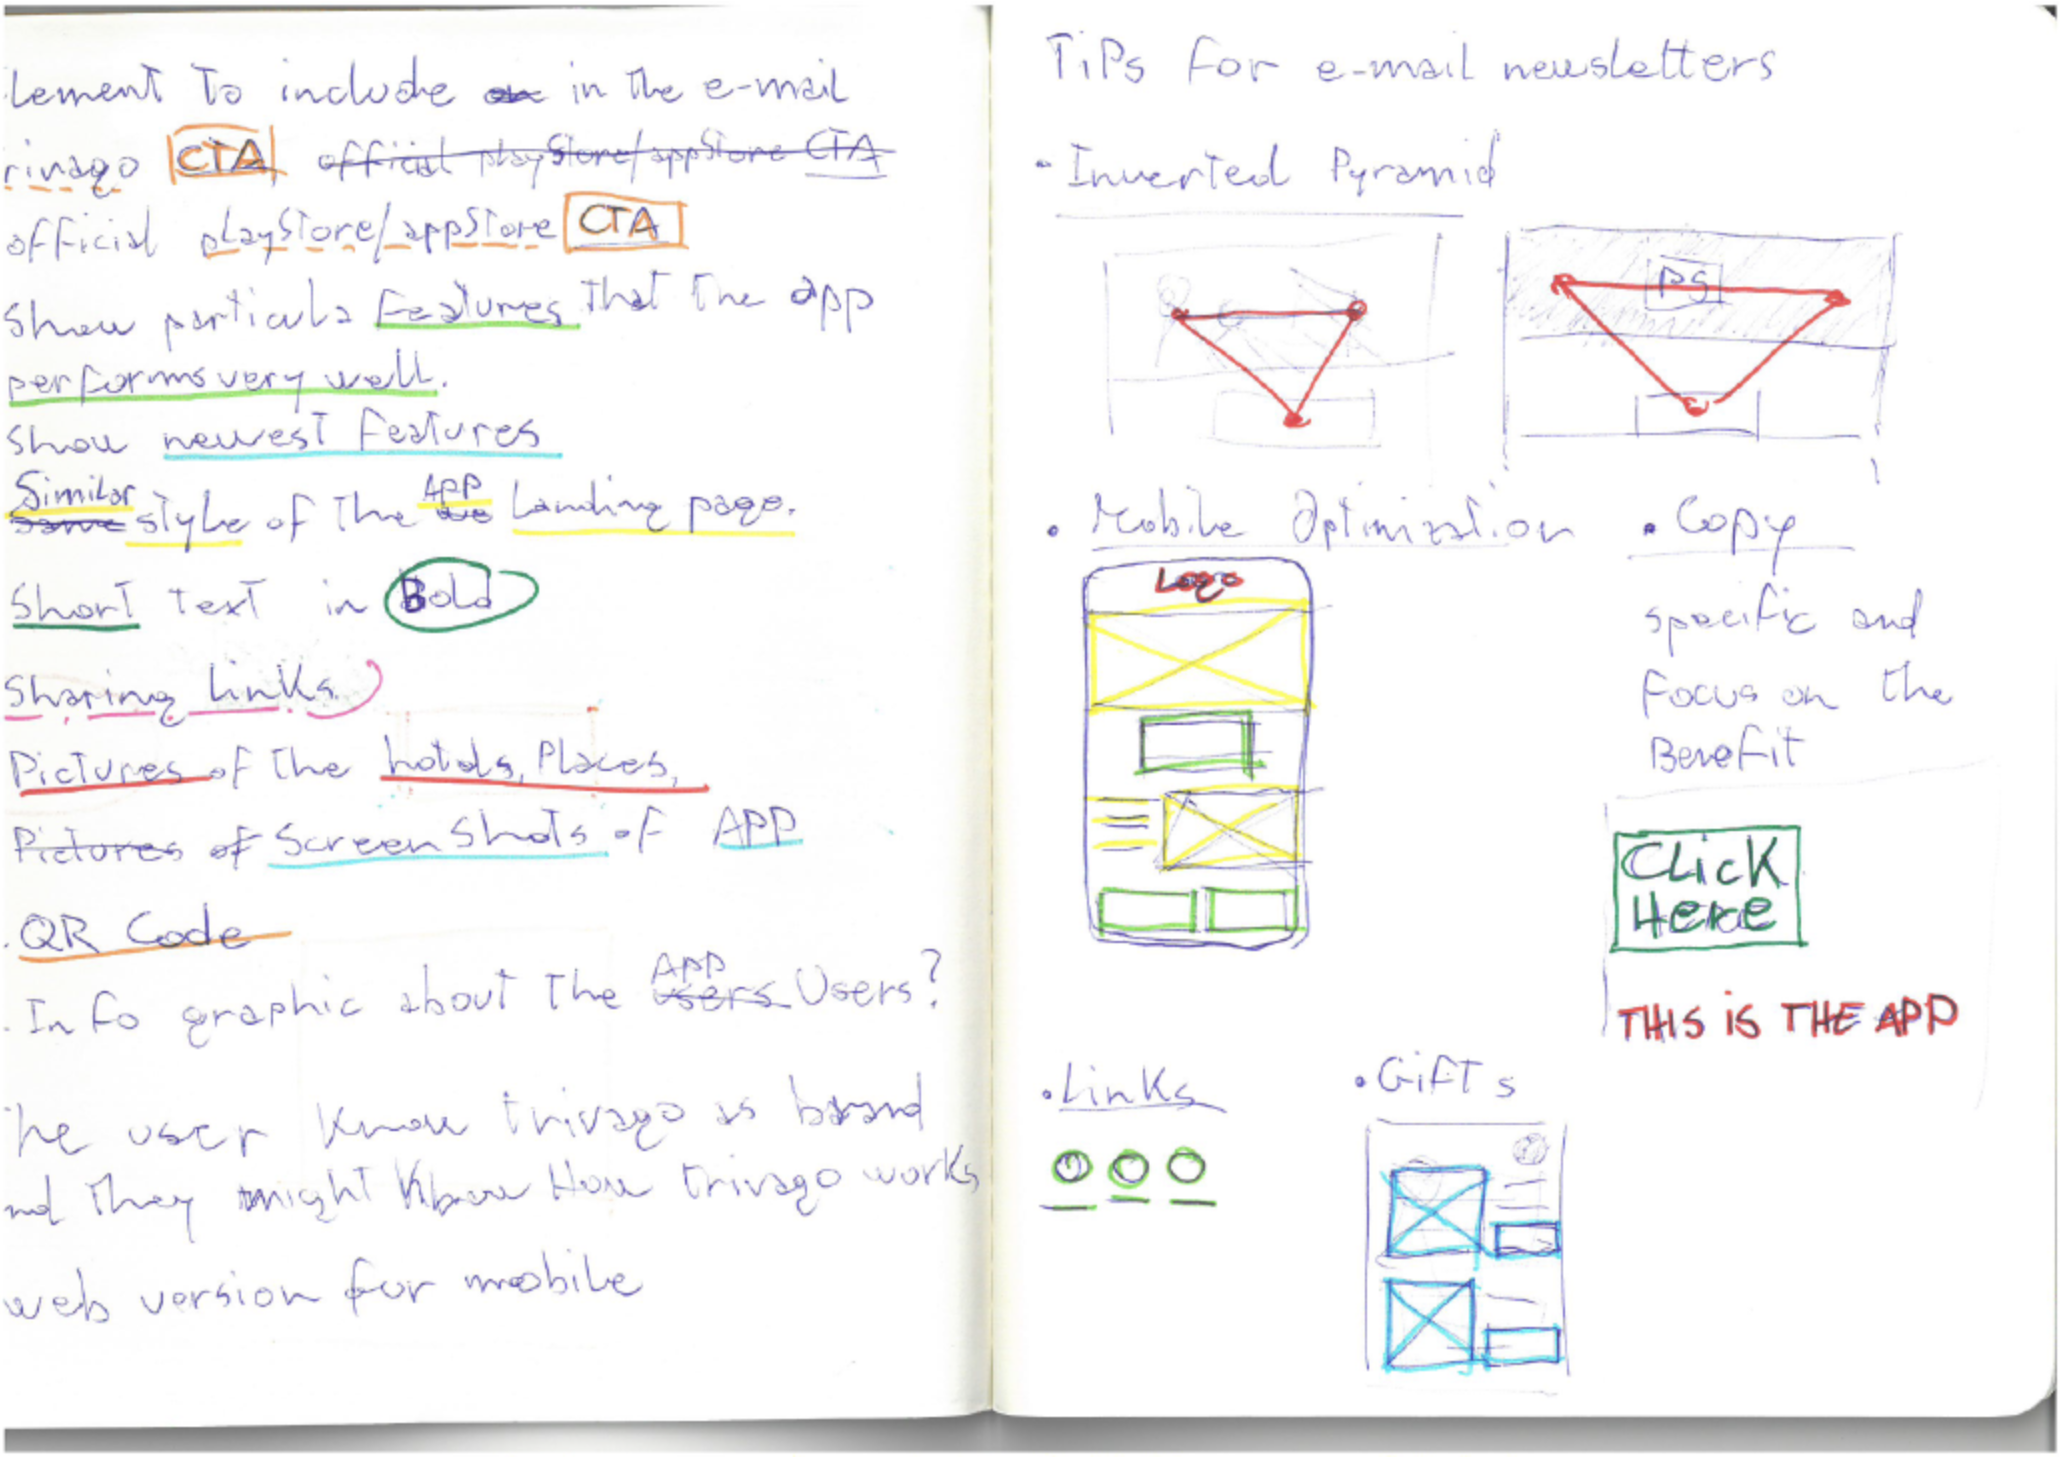 lement to include in the e-mail
rivago CTA official playStore/appStore CTA
official playStore/appStore CTA
Show particula features that the app
performs very well.
Show newest features
Similar APP
same style of the Landing page.
Short text in Bold
Sharing links
Pictures of the hotels, Places,
Pictures of ScreenShots of APP
. QR Code
APP
. Info graphic about the users Users?
he user know trivago as brand
nd they might know How trivago works
web version for mobile
Tips for e-mail newsletters
• Inverted Pyramid
PS
• Mobile Optimization
Logo
• Copy
specific and
focus on the
Benefit
CLiCK
HERE
THIS iS THE APP
• Links
• Gifts